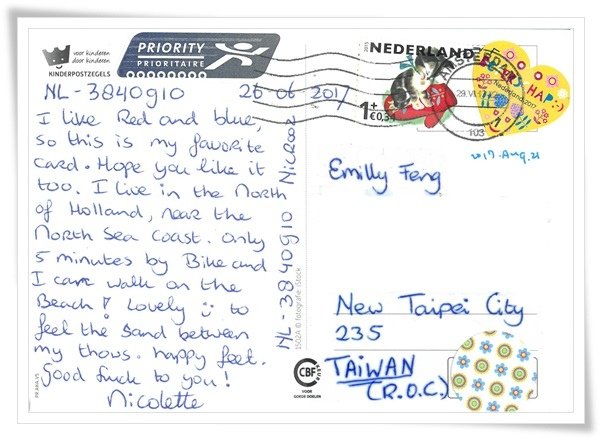 voor kinderen
door kinderen
KINDERPOSTZEGELS
PRIORITY
PRIORITAIRE
2015
NEDERLAND
1+
€0,34
Nederland 2017
29.VI.
103
NL-3840910 26 06 2017
I like Red and blue,
so this is my favorite
card. Hope you like it
too. I live in the North
of Holland, near the
North Sea Coast. Only
5 minutes by Bike and
I can walk on the
Beach! Lovely to
feel the sand between
my thows. happy feet.
Good luck to you!
Nicolette
NL-3840910 Nicrooz
1502A © fotografie iStock
2017.Aug.21
Emilly Feng
New Taipei City
235
TAIWAN
(R.O.C.)
CBF
KEUR
VOOR
GOEDE DOELEN